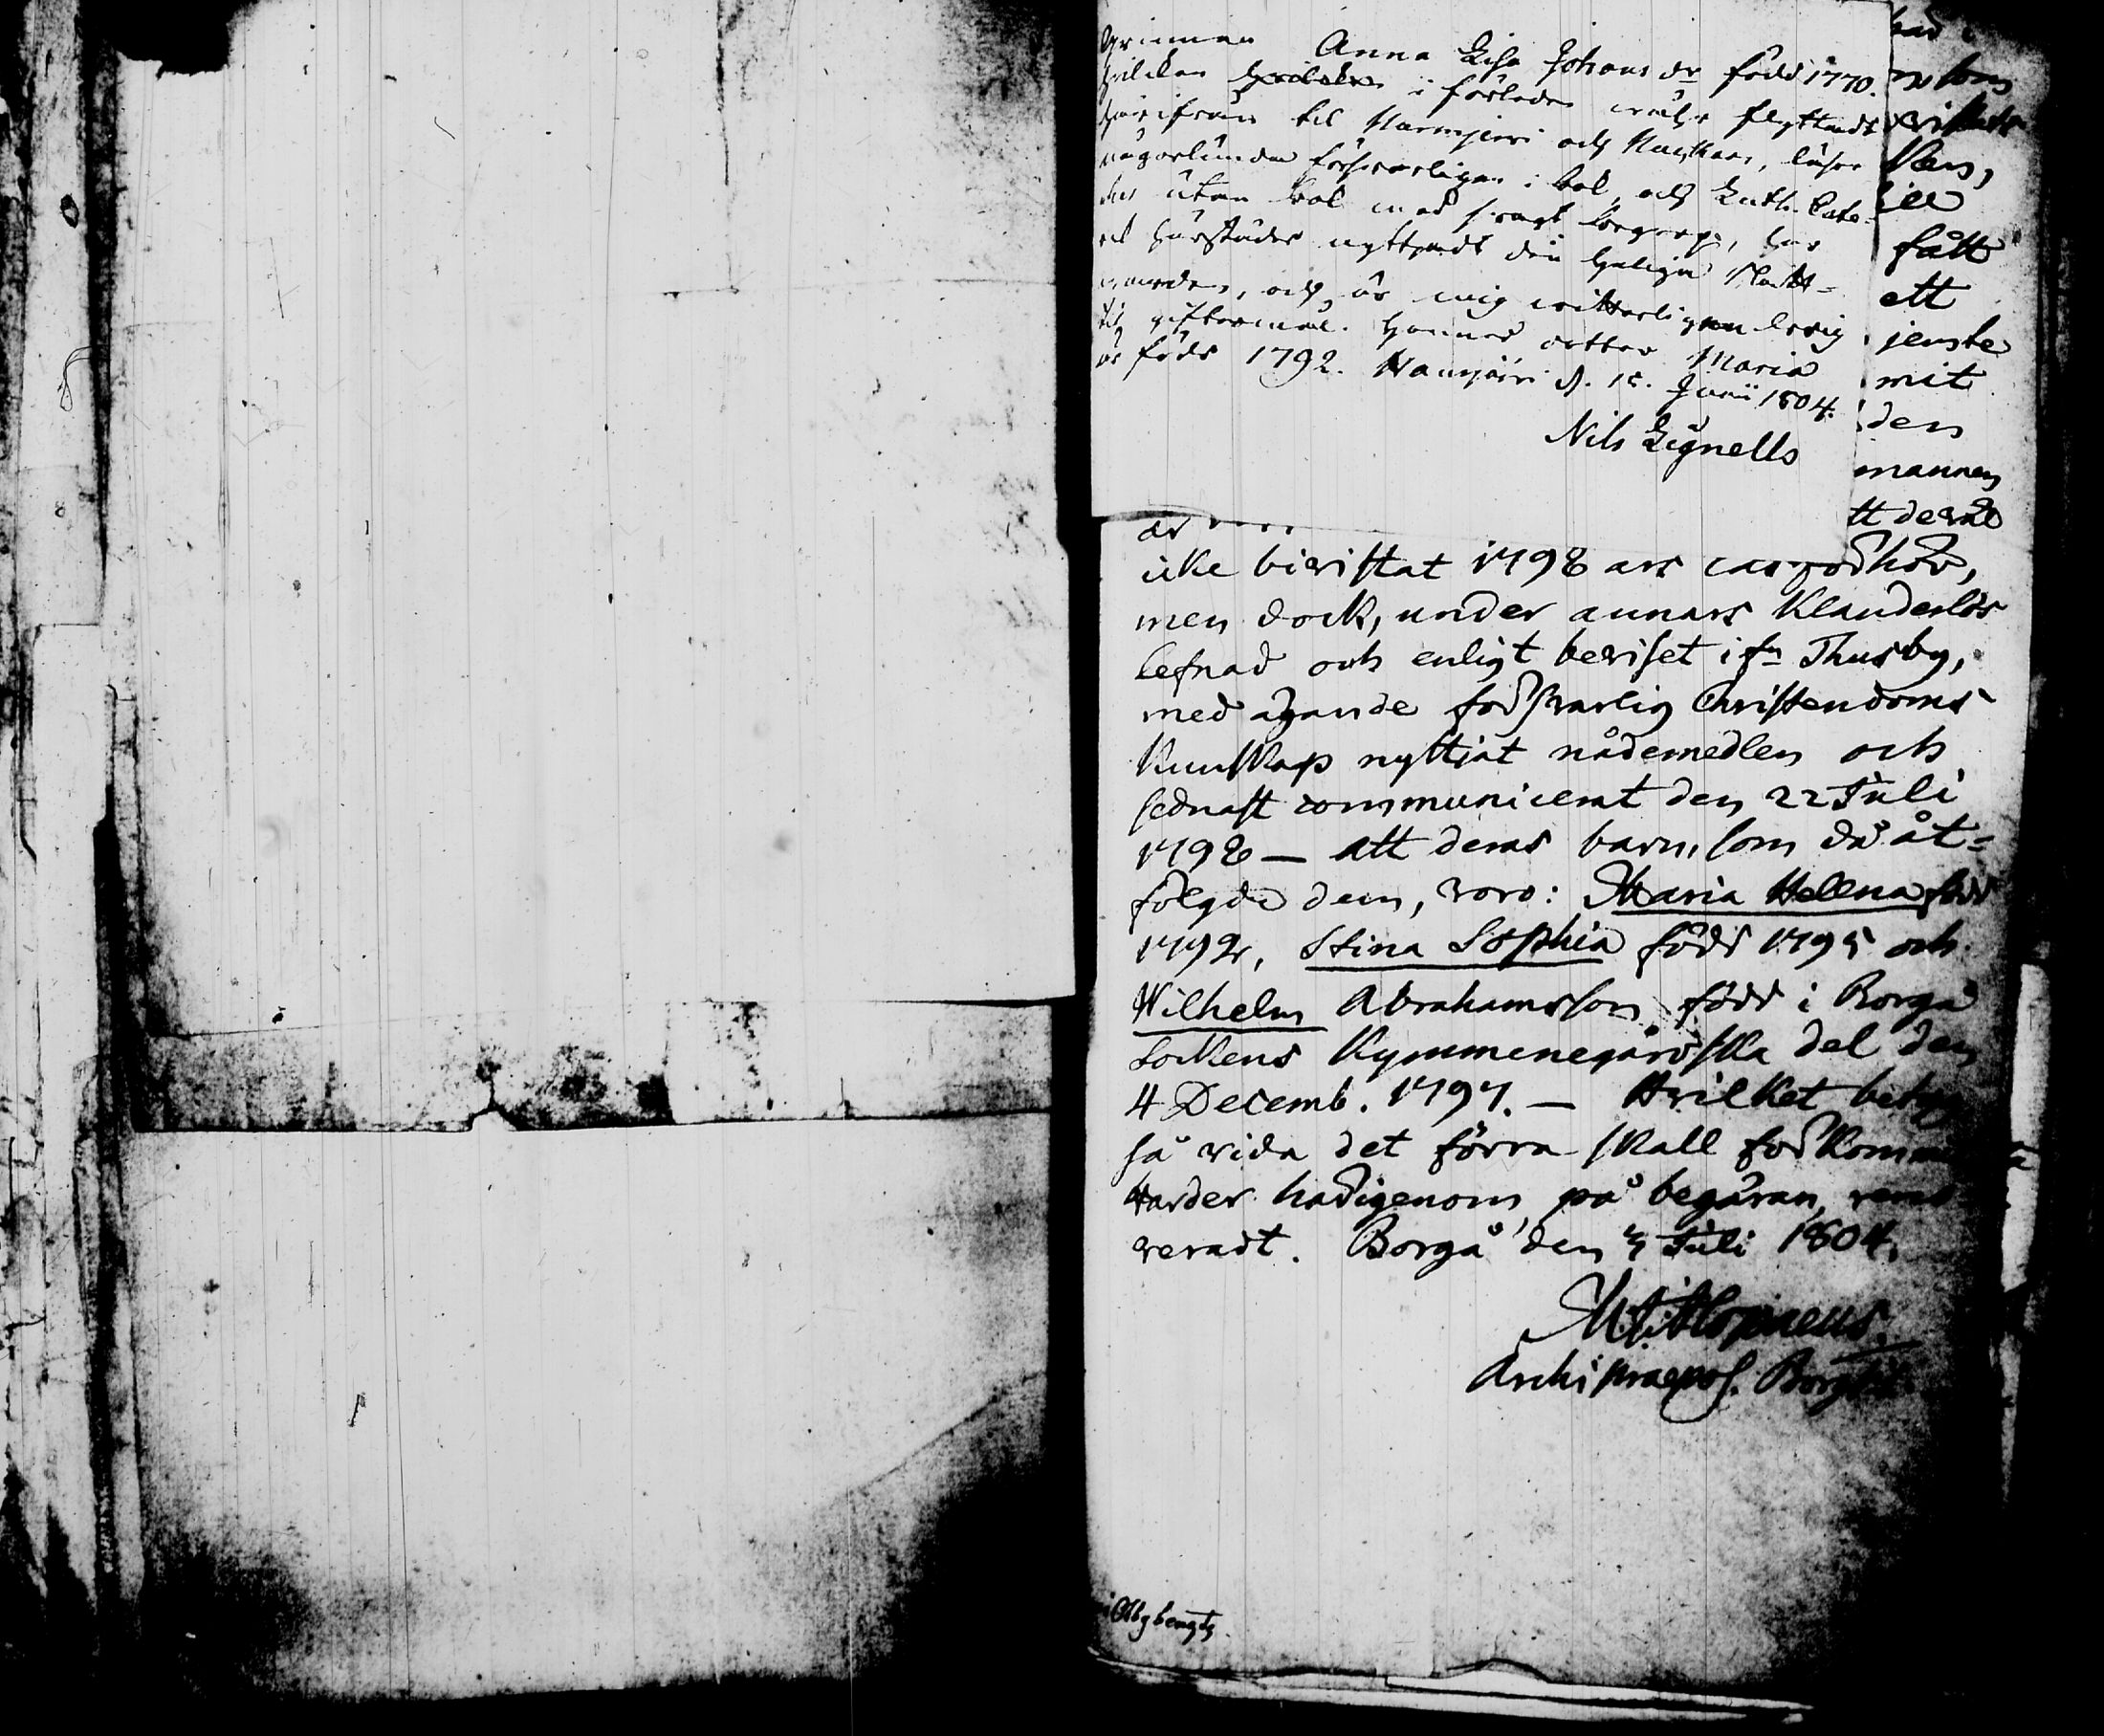 Anna Lisa Johans dr född 1770.
hvilken i förleden flyttadt
härifrån til Harmjärvi och läser
någorlunda försvarligen i bok, och Luth. Cate-
ches utan bok med svagt begrep, har
ock härstädes nyttjadt den heliga Natt-
varden, och är mig vitterligen ledig
til giftermål. Hennes dotter Maria
är född 1792. d. 15. Junii 1804.
Nils Lignells
som
fått
ett
jenste
mit
den
mannen
tt deras
är
icke bivistat 1798 års
men dock, under annars klanderlös
lefnad och enligt beviset ifn Thusby,
med ägande försvarlig Christendoms
kunskap nyttjat nådemedlen och
sednast communicerat den 22 Juli
1798 — att deras barn, som då åt=
följde dem, voro: Maria Helena född
1792, Stina Sophia född 1795 och
Wilhelm Abrahamsson född i Borgå
Sockens Kymmenegårdska del den
4 Decemb. 1797. — Hvilket
så vida det förra skall förkomm
varder härigenom, på begäran,
veradt. Borgå den Juli 1804.
Archipraepos. Borg